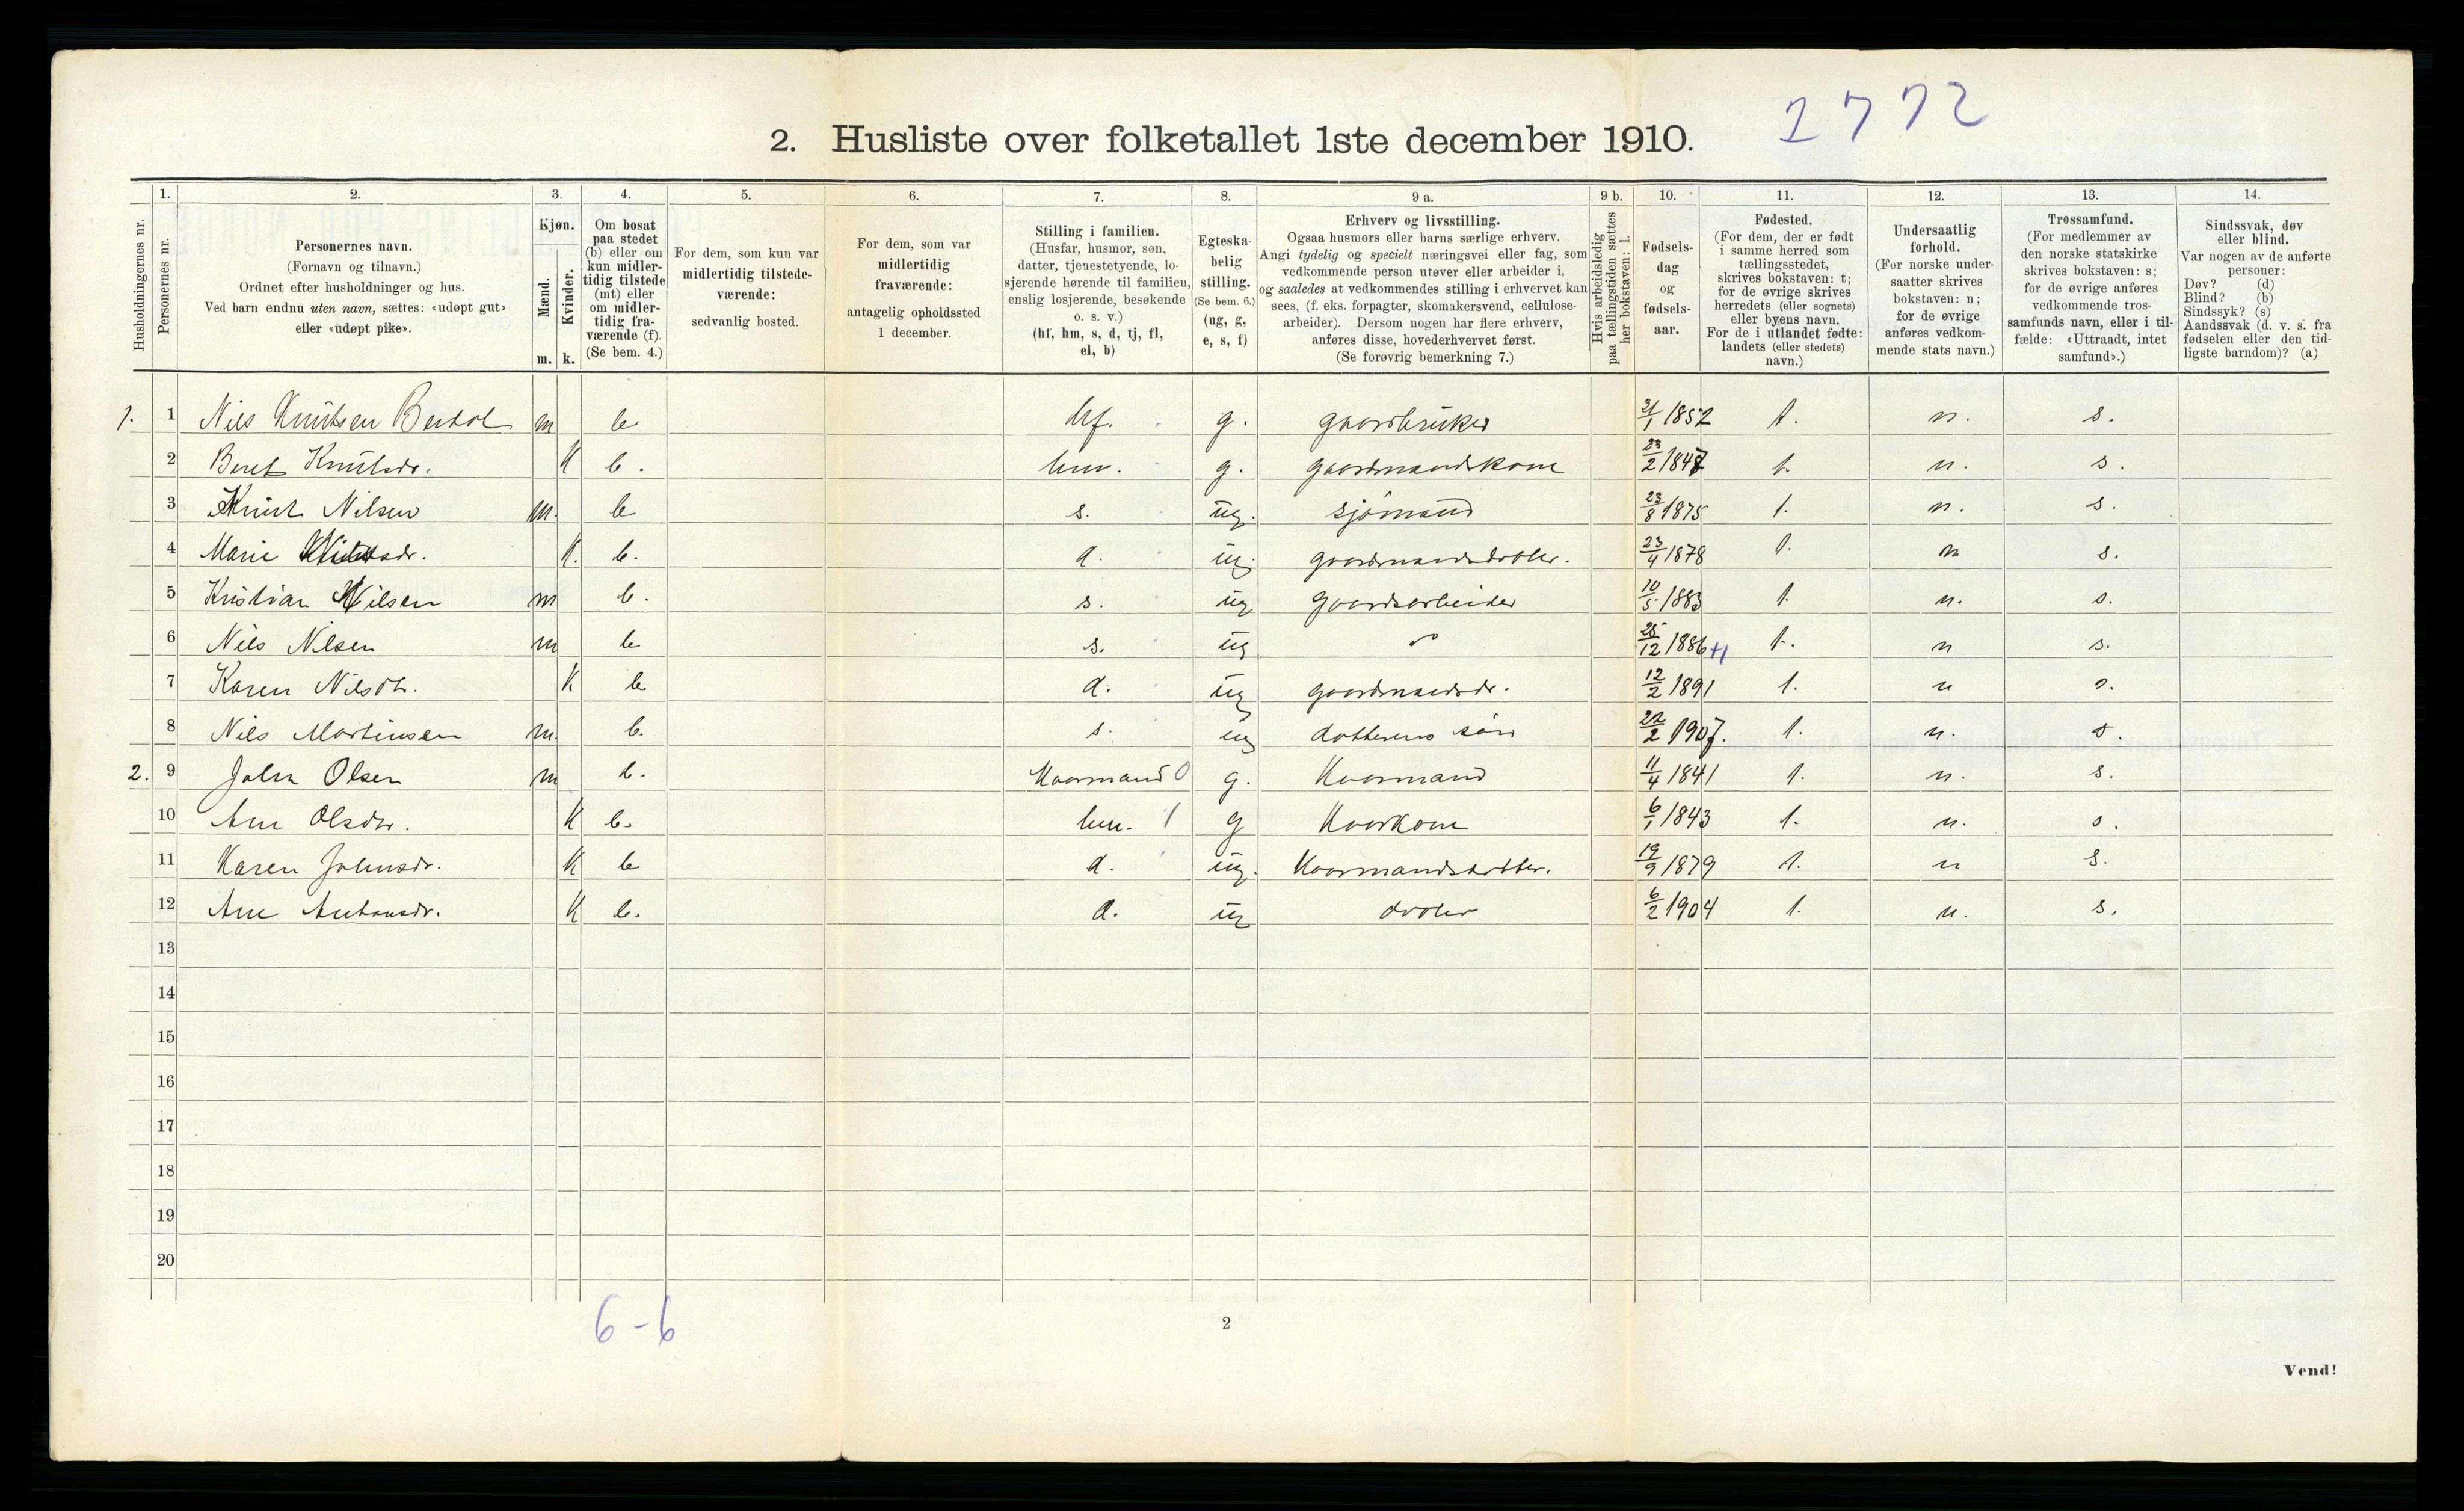 2772
2. Husliste over folketallet 1ste december 1910.
1. 2. 3. 4. 5. 6. 7. 8. 9 a. 9 b. 10. 11. 12. 13. 14.
Husholdningernes nr.
Personernes nr.
Personernes navn.
(Fornavn og tilnavn.)
Ordnet efter husholdninger og hus.
Ved barn endnu uten navn, sættes: «udøpt gut»
eller «udøpt pike».
Kjøn.
Mænd.
Kvinder.
m. k.
Om bosat
paa stedet
(b) eller om
kun midler-
tidig tilstede
(mt) eller
om midler-
tidig fra-
værende (f).
(Se bem. 4.)
For dem, som kun var
midlertidig tilstede-
værende:
sedvanlig bosted.
For dem, som var
midlertidig
fraværende:
antagelig opholdssted
1 december.
Stilling i familien.
(Husfar, husmor, søn,
datter, tjenestetyende, lo-
sjerende hørende til familien,
enslig losjerende, besøkende
o. s. v.)
(hf, hm, s, d, tj, fl,
el, b)
Egteska-
belig
stilling.
(Se bem. 6.)
(ug, g,
e, s, f)
Erhverv og livsstilling.
Ogsaa husmors eller barns særlige erhverv.
Angi tydelig og specielt næringsvei eller fag, som
vedkommende person utøver eller arbeider i,
og saaledes at vedkommendes stilling i erhvervet kan
sees, (f. eks. forpagter, skomakersvend, cellulose-
arbeider). Dersom nogen har flere erhverv,
anføres disse, hovederhvervet først.
(Se forøvrig bemerkning 7.)
Hvis arbeidsledig
paa tællingstiden sættes
her bokstaven: l.
Fødsels-
dag
og
fødsels-
aar.
Fødested.
(For dem, der er født
i samme herred som
tællingsstedet,
skrives bokstaven: t;
for de øvrige skrives
herredets (eller sognets)
eller byens navn.
For de i utlandet fødte:
landets (eller stedets)
navn.)
Undersaatlig
forhold.
(For norske under-
saatter skrives
bokstaven: n;
for de øvrige
anføres vedkom-
mende stats navn.)
Trossamfund.
(For medlemmer av
den norske statskirke
skrives bokstaven: s;
for de øvrige anføres
vedkommende tros-
samfunds navn, eller i til-
fælde: «Uttraadt, intet
samfund».)
Sindssvak, døv
eller blind.
Var nogen av de anførte
personer:
Døv? (d)
Blind? (b)
Sindssyk? (s)
Aandssvak (d. v. s. fra
fødselen eller den tid-
ligste barndom)? (a)
1. 1 Nils Knutsen m b. hf. g. gaardbruker 31/1 1852 t. n. s.
2 Beret Knutsdr. K b. hm. g. gaardmandskone 23/2 1847 t. n. s.
3 Knut Nilsen m. b s. ug. sjømand 23/8 1875 t. n. s.
4 Marie Nilsdr. K. b. d. ug. gaardmandsdatter. 23/4 1878 t. n s.
5 Kristian Nilsen m b. s. ug gaardsarbeider 10/5 1883 t. n. s.
6 Nils Nilsen m b s. ug " 25/12 1886 +1 t. n s.
7 Karen Nilsdtr. K b d. ug gaardmandsdr. 12/2 1891 t. n s.
8 Nils Martinsen m. b. s. ug datterens søn 22/2 1907. t. n. s.
2. 9 John Olsen m b. Kaarmand 0 g. Kaarmand 11/4 1841 t. n. s.
10 Ane Olsdtr. K b. hm. 1 g Kaarkone 6/1 1843 t. n. s.
11 Karen Johnsdr. K b d. ug. Kaarmandsdatter. 19/9 1879 t. n s.
12 Ane Antonsdr. K b. d. ug datter 6/2 1904 t. n. s.
13
14
15
16
17
18
19
20
6-6
2
Vend!